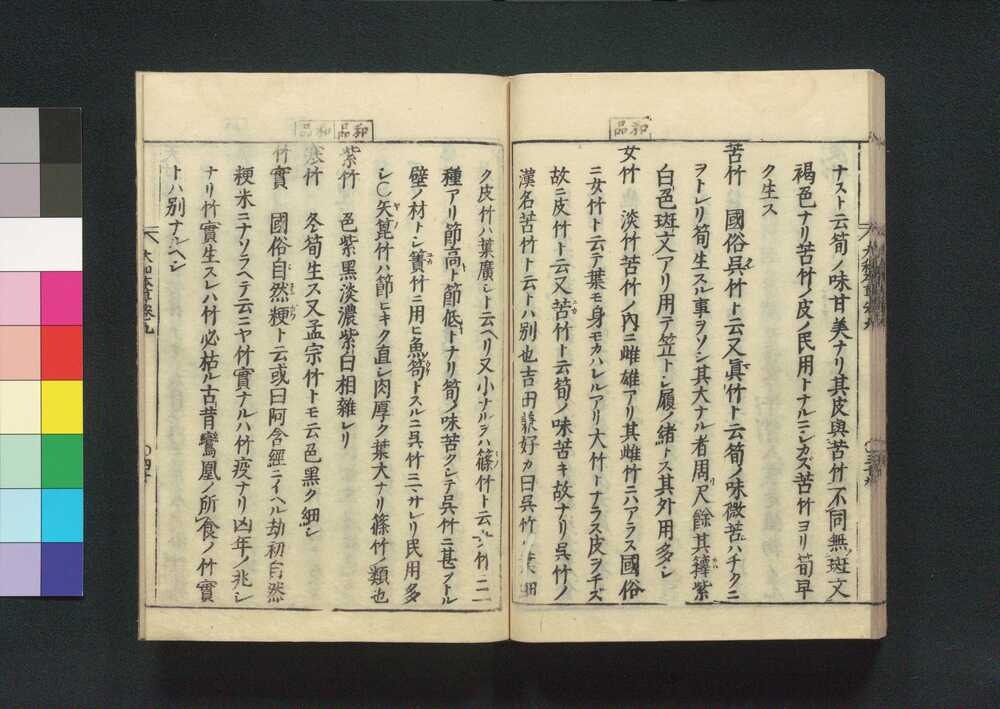 和品
ナスト云筍ノ味甘美ナリ其皮與苦竹不同無斑文
褐色ナリ苦竹ノ皮ノ民用トナルニシカズ苦竹ヨリ筍早
ク生ス
苦竹 國俗呉竹ト云又眞竹ト云筍ノ味微苦ハチクニ
ヲトレリ筍生スル事ヲソシ其大ナル者周尺餘其籜紫
白色斑文アリ用テ笠トシ履ノ緒トス其外用多シ
女竹 淡竹苦竹ノ內ニ雌雄アリ其雌竹ニハアラス國俗
ニ女竹ト云テ葉モ身モカハレルアリ大竹トナラス皮ヲチズ
故ニ皮竹ト云又苦竹ト云筍ノ味苦キ故ナリ呉竹ノ
漢名苦竹ト云トハ別也吉田兼好カ曰呉竹ハ葉細
和品
和品
ク皮竹ハ葉廣シト云ヘリ又小ナルヲハ篠竹ト云女竹ニ二
種アリ節高ト節低トナリ筍ノ味苦クシテ呉竹ニ甚ヲトル
壁ノ材トシ簀竹ニ用ヒ魚笱トスルニ呉竹ニマサレリ民用多
シ〇矢箆竹ハ節ヒキク直シ肉厚ク葉大ナリ篠竹ノ類也
紫竹 色紫黑淡濃紫白相雜レリ
寒竹 冬筍生ス又孟宗竹トモ云色黑ク細シ
竹實 國俗自然粳ト云或曰阿含經ニイヘル劫初自然
粳米ニナソラヘテ云ニヤ竹實ナルハ竹疫ナリ凶年ノ兆シ
ナリ竹實生スレハ竹必枯ル古昔鸞凰ノ所食ノ竹實
トハ別ナルヘシ
大和本草卷九
〇四十